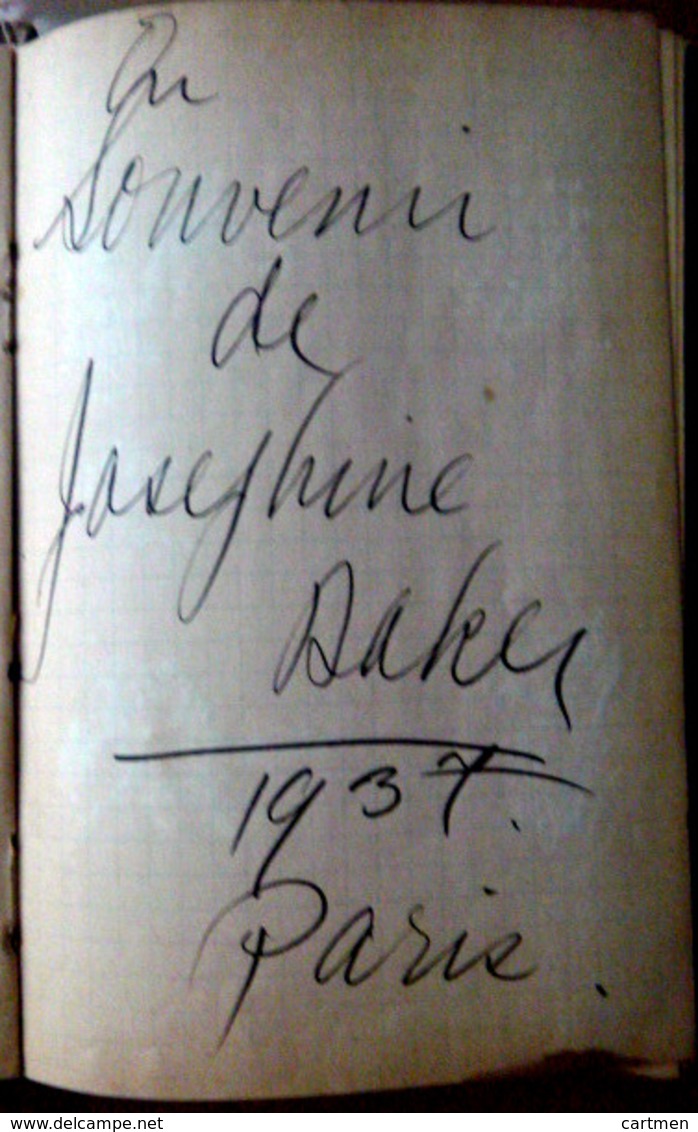 En
Souvenir
de
Josephine
Baker
1937.
Paris.
delcampe.net
cartmen